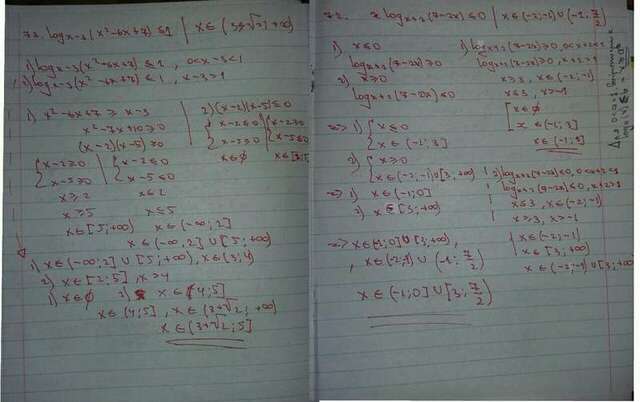 73. log x-3 (x² - 6x + 7) ≤ 1 | x ∈ (3+√2; +∞)
1) log x-3 (x² - 6x + 7) ≤ 1, 0<x-3<1
2) log x-3 (x² - 6x + 7) ≤ 1, x-3>1
1) x² - 6x + 7 ≥ x-3
x² - 7x + 10 ≥ 0
(x-2)(x-5) ≥ 0
{ x-2 ≥ 0 { x-2 ≤ 0
x-5 ≥ 0 x-5 ≤ 0
x ≥ 2 x ≤ 2
x ≥ 5 x ≤ 5
x ∈ [5; +∞) x ∈ (-∞; 2]
x ∈ (-∞; 2] ∪ [5; +∞)
2) (x-2)(x-5) ≤ 0
{ x-2 ≤ 0 { x-2 ≥ 0
x-5 ≥ 0 x-5 ≤ 0
x ∈ ∅ x ∈ [2; 5]
1) x ∈ (-∞; 2] ∪ [5; +∞), x ∈ (3; 4)
2) x ∈ [2; 5], x > 4
1) x ∈ ∅ 2) x ∈ (4; 5]
x ∈ (4; 5], x ∈ (3+√2; +∞)
x ∈ (3+√2; 5]
72. x log x+2 (7-2x) ≤ 0 | x ∈ (-2; -1) ∪ (-1; 7/2)
1) x ≤ 0
log x+2 (7-2x) ≥ 0
2) x ≥ 0
log x+2 (7-2x) ≤ 0
=> 1) { x ≤ 0
x ∈ (-1; 3]
2) { x ≥ 0
x ∈ (-2; -1) ∪ [3; +∞)
=> 1) x ∈ (-1; 0]
2) x ∈ [3; +∞)
=> x ∈ (-1; 0] ∪ [3; +∞),
, x ∈ (-2; -1) ∪ (-1; 7/2)
x ∈ (-1; 0] ∪ [3; 7/2)
1) log x+2 (7-2x) ≥ 0, 0<x+2<1
log x+2 (7-2x) ≥ 0, x+2>1
x ≥ 3, x ∈ (-2; -1)
x ≤ 3, x > -1
[ x ∈ ∅
x ∈ (-1; 3]
x ∈ (-1; 3]
2) log x+2 (7-2x) ≤ 0, 0<x+2<1
log x+2 (7-2x) ≤ 0, x+2>1
x ≤ 3, x ∈ (-2; -1)
x ≥ 3, x > -1
{ x ∈ (-2; -1)
x ∈ [3; +∞)
x ∈ (-2; -1) ∪ [3; +∞)